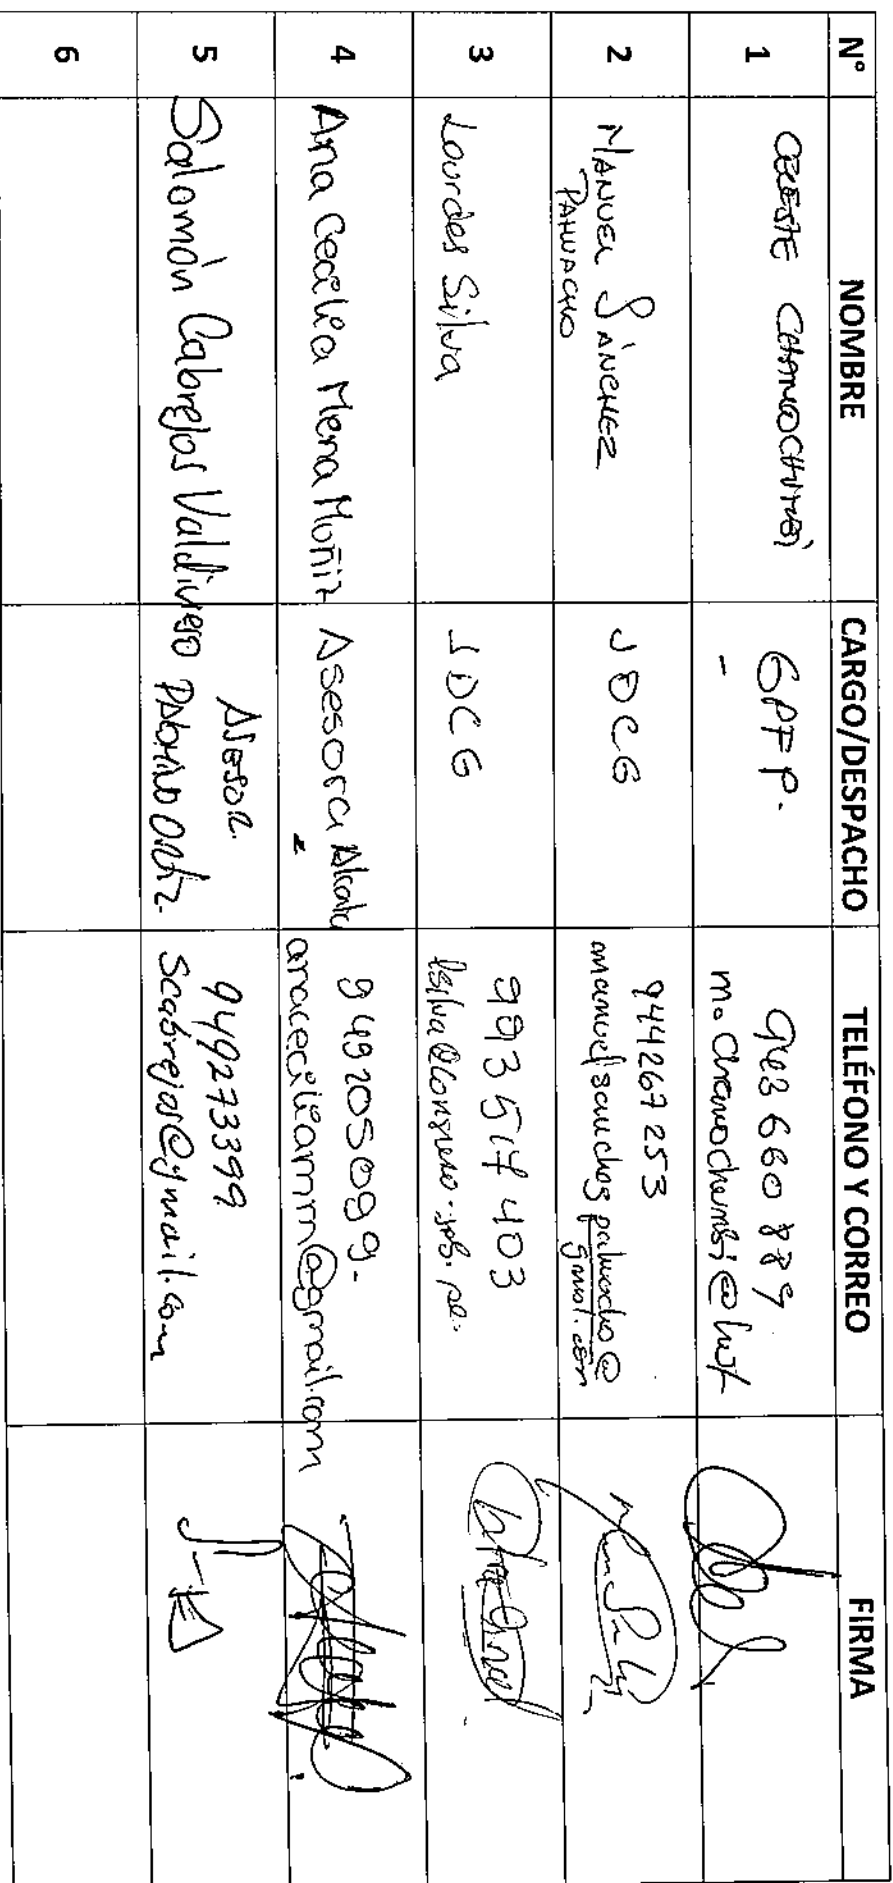 N° NOMBRE CARGO/DESPACHO TELÉFONO Y CORREO FIRMA
1 CELESTE GPFP. 943 660 889
-
2 MANUEL SÁNCHEZ JDCG 944267 253
PAHUACHO manuelsanchezpahuacho@
gmail.com
3 Lourdes Silva JDCG 993 514 403
lsilva@congreso.gob.pe.
4 Ana Cecilia Mena Muñiz Asesora 949205099.
anaceciliamm@gmail.com
5 Salomón Cabrejos Valdivieso ASESOR 949273399
Palomino Ortiz. scabrejos@gmail.com
6